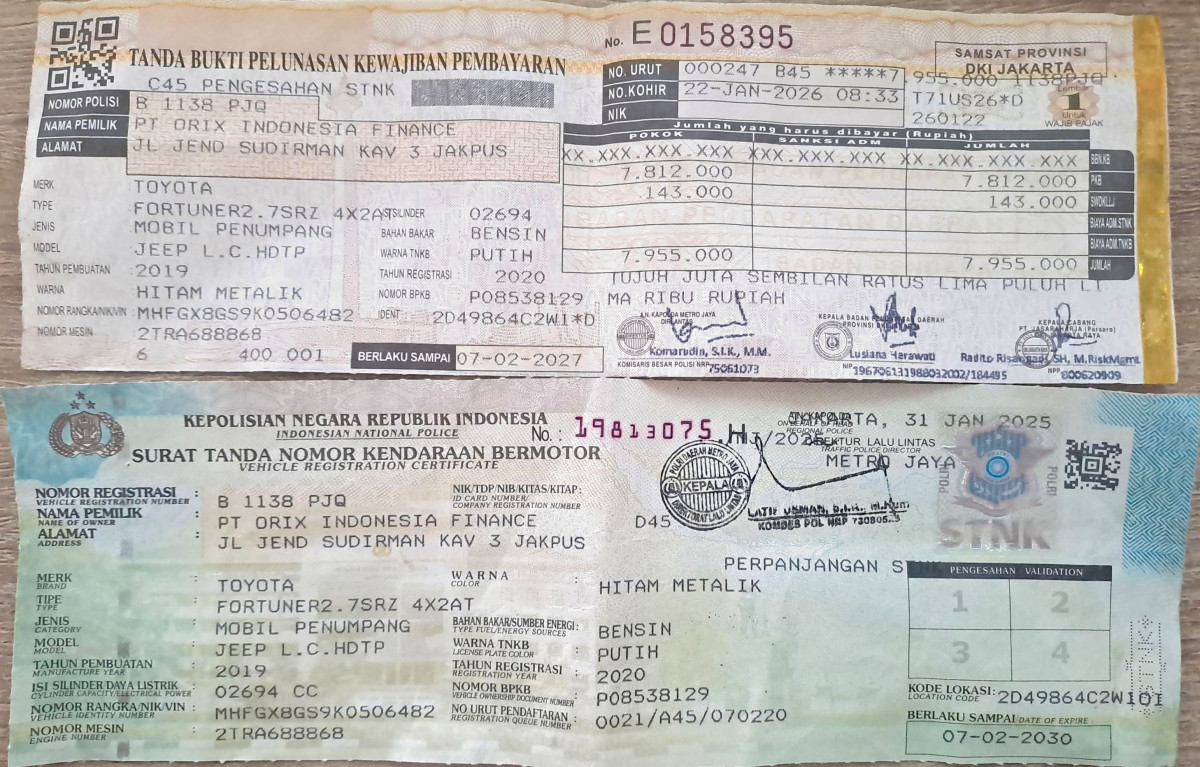 No. E 0158395
TANDA BUKTI PELUNASAN KEWAJIBAN PEMBAYARAN
SAMSAT PROVINSI
DKI JAKARTA
C45 PENGESAHAN STNK
NO. URUT 000247 B45 *****7 955.000 1138PJQ
NO.KOHIR 22-JAN-2026 08:33 T71US26*D
NIK 260122
Lembar
1
Untuk
WAJIB PAJAK
NOMOR POLISI B 1138 PJQ
NAMA PEMILIK PT ORIX INDONESIA FINANCE
ALAMAT JL JEND SUDIRMAN KAV 3 JAKPUS
Jumlah yang harus dibayar (Rupiah)
POKOK SANKSI ADM JUMLAH
XX.XXX.XXX XXX.XXX.XXX XX.XXX.XXX BBN.KB
7.812.000 7.812.000 PKB
143.000 143.000 SWDKLLJ
BIAYA ADM.STNK
BIAYA ADM.TNKB
7.955.000 7.955.000 JUMLAH
TUJUH JUTA SEMBILAN RATUS LIMA PULUH LI
MA RIBU RUPIAH
MERK : TOYOTA
TYPE : FORTUNER2.7SRZ 4X2AT ISI SILINDER : 02694
JENIS : MOBIL PENUMPANG BAHAN BAKAR : BENSIN
MODEL : JEEP L.C.HDTP WARNA TNKB : PUTIH
TAHUN PEMBUATAN : 2019 TAHUN REGISTRASI : 2020
WARNA : HITAM METALIK NOMOR BPKB : P08538129
NOMOR RANGKA/NIK/VIN : MHFGX8GS9K0506482 IDENT : 2D49864C2W1*D
NOMOR MESIN : 2TRA688868
6 400 001 BERLAKU SAMPAI 07-02-2027
A.N. KAPOLDA METRO JAYA
DIRLANTAS
Komarudin, S.I.K., M.M.
KOMISARIS BESAR POLISI NRP 75061073
KEPALA BADAN DAERAH
PROVINSI
Lusiana Herawati
NIP 196706131988032002/184495
KEPALA CABANG
PT. JASARAHARJA (Persero)
Radito Risangadi, SH, M.RiskMgmt.
NPP 800620909
KEPOLISIAN NEGARA REPUBLIK INDONESIA
INDONESIAN NATIONAL POLICE
No. : 19813075.H
SURAT TANDA NOMOR KENDARAAN BERMOTOR
VEHICLE REGISTRATION CERTIFICATE
31 JAN 2025
ON BEHALF OF
REGIONAL POLICE
DIREKTUR LALU LINTAS
TRAFFIC POLICE DIRECTOR
METRO JAYA
KEPALA
LATIF USMAN, S.I.K., M.Hum
KOMBES POL NRP
POLRI
STNK
NOMOR REGISTRASI : B 1138 PJQ
VEHICLE REGISTRATION NUMBER
NIK/TDP/NIB/KITAS/KITAP :
ID CARD NUMBER/
COMPANY REGISTRATION NUMBER
NAMA PEMILIK : PT ORIX INDONESIA FINANCE D45
NAME OF OWNER
ALAMAT : JL JEND SUDIRMAN KAV 3 JAKPUS
ADDRESS
PERPANJANGAN STNK
MERK : TOYOTA
BRAND
WARNA : HITAM METALIK
COLOR
TIPE : FORTUNER2.7SRZ 4X2AT
TYPE
JENIS : MOBIL PENUMPANG
CATEGORY
BAHAN BAKAR/SUMBER ENERGI : BENSIN
TYPE FUEL/ENERGY SOURCES
MODEL : JEEP L.C.HDTP
MODEL
WARNA TNKB : PUTIH
LICENSE PLATE COLOR
TAHUN PEMBUATAN : 2019
MANUFACTURE YEAR
TAHUN REGISTRASI : 2020
REGISTRATION YEAR
ISI SILINDER/DAYA LISTRIK : 02694 CC
CYLINDER CAPACITY/ELECTRICAL POWER
NOMOR BPKB : P08538129
VEHICLE OWNERSHIP DOCUMENT NUMBER
NOMOR RANGKA/NIK/VIN : MHFGX8GS9K0506482
VEHICLE IDENTITY NUMBER
NO URUT PENDAFTARAN : 0021/A45/070220
REGISTRATION QUEUE NUMBER
NOMOR MESIN : 2TRA688868
ENGINE NUMBER
PENGESAHAN VALIDATION
1 2
3 4
KODE LOKASI : 2D49864C2W1OI
LOCATION CODE
BERLAKU SAMPAI DATE OF EXPIRE :
07-02-2030